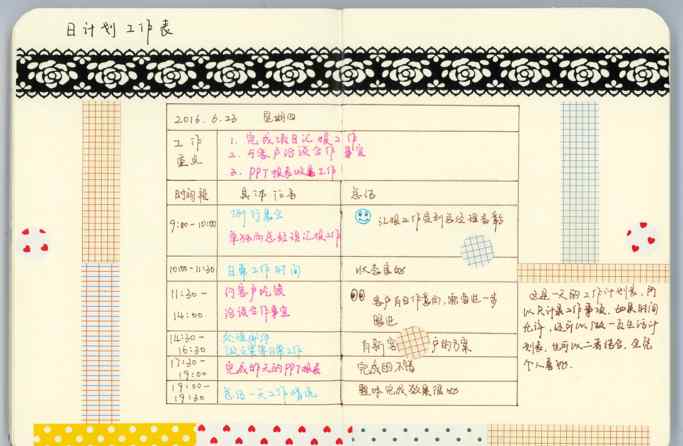 日计划工作表
2016.6.23 星期四
工作
重点
1. 完成项目汇报工作
2. 与客户洽谈合作事宜
3. PPT报表收集工作
时间段
具体行为
总结
9:00-10:00
例行晨会
单独向总经理汇报工作
10:00-11:30
日常工作时间
状态良好
11:30-
14:00
约客户吃饭
洽谈合作事宜
客户有合作意向,需要进一步
跟进
14:30-
16:30
处理邮件
17:30-
19:00
完成昨天的PPT报表
完成的不错
19:00-
19:30
总结一天工作情况
整体完成效果很好
这是一天的工作计划表,所
以只计算工作事项,如果时间
允许,还可以做一页生活计
划表,也可以二者结合,全凭
个人喜好.